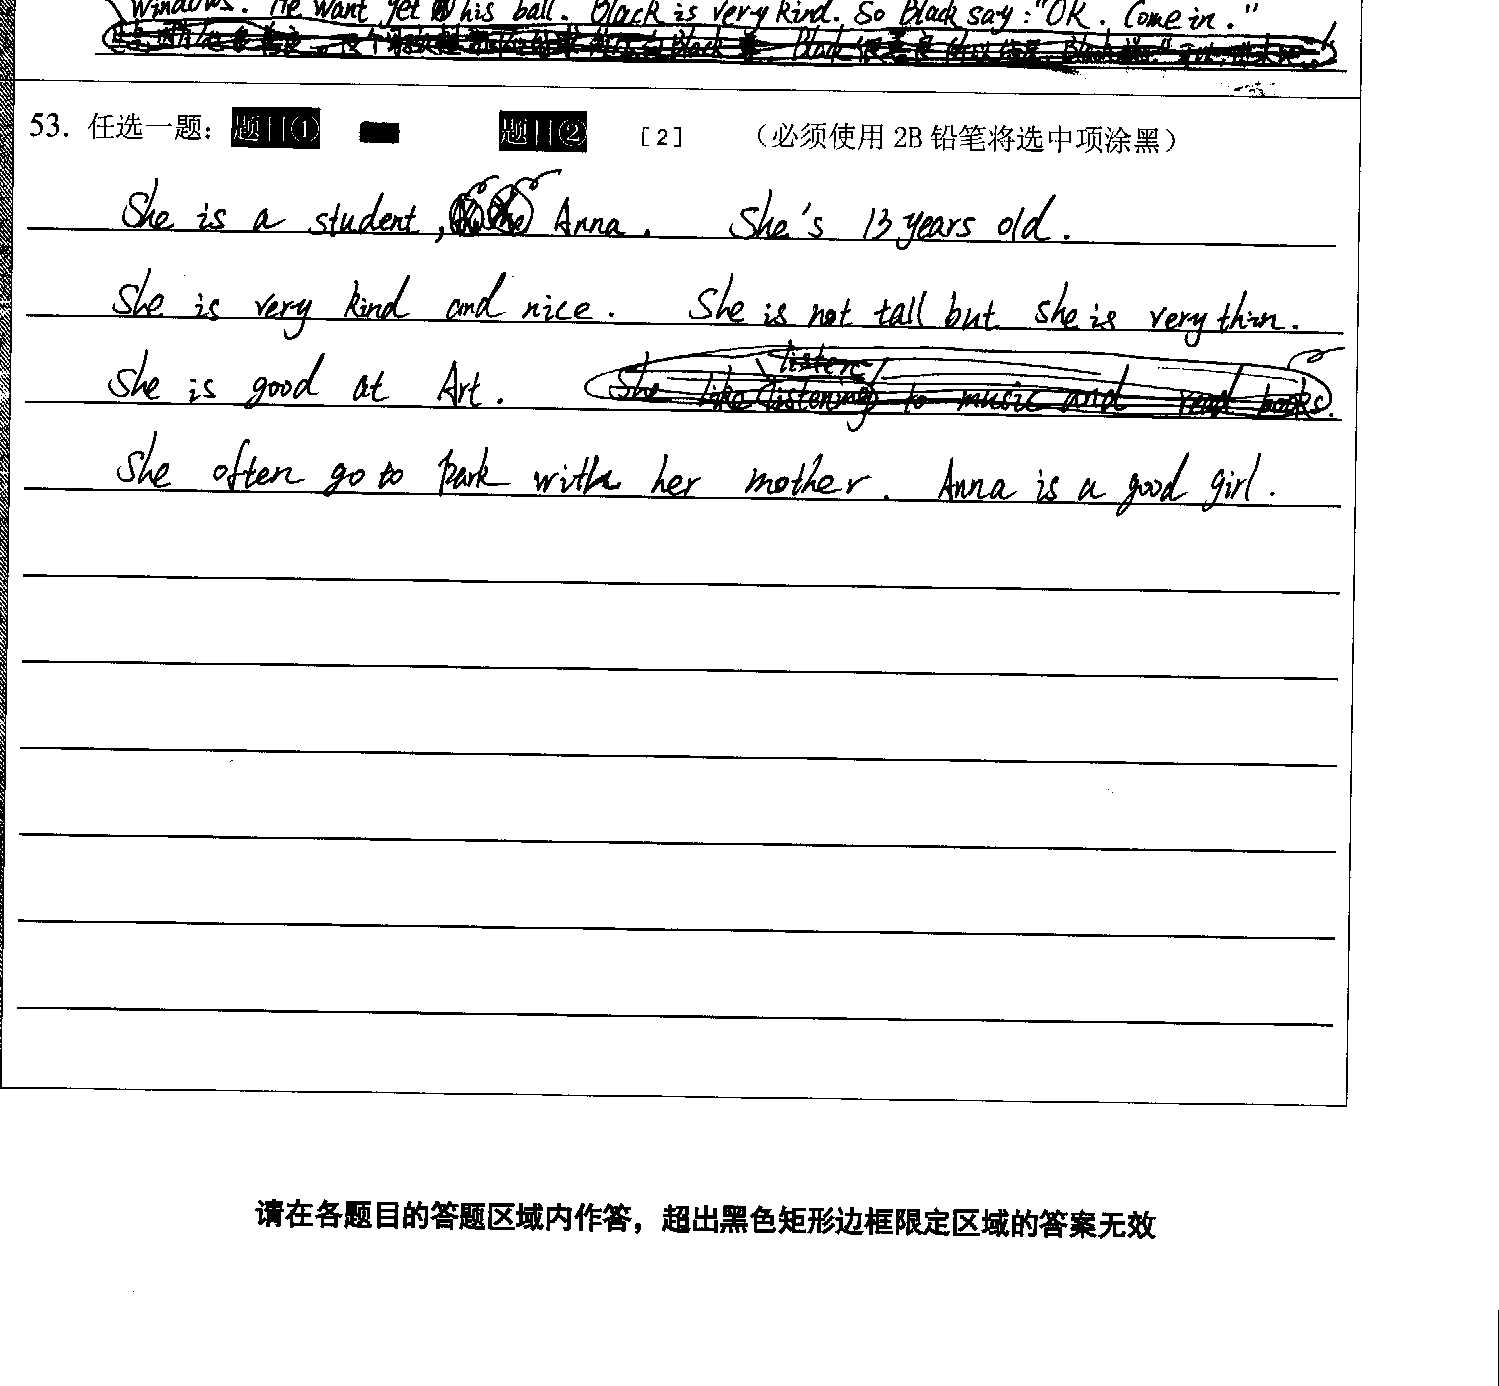 windows. He want get his ball. Black is very kind. So Black say: "OK. Come in."
53. 任选一题: 题目① 题目② [2] (必须使用 2B 铅笔将选中项涂黑)
She is a student, Anna. She's 13 years old.
She is very kind and nice. She is not tall but she is very thin.
listen
She is good at Art. She like listening to music and read books.
She often go to park with her mother. Anna is a good girl.
请在各题目的答题区域内作答，超出黑色矩形边框限定区域的答案无效